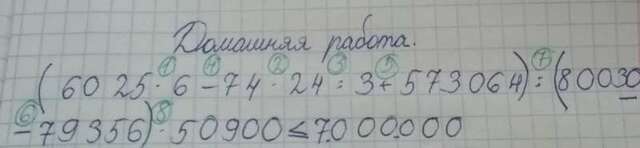 Домашняя работа.
(6025 · 6 - 74 · 24 : 3 + 573064) : (80030
- 79356) · 50900 ≤ 7.000.000